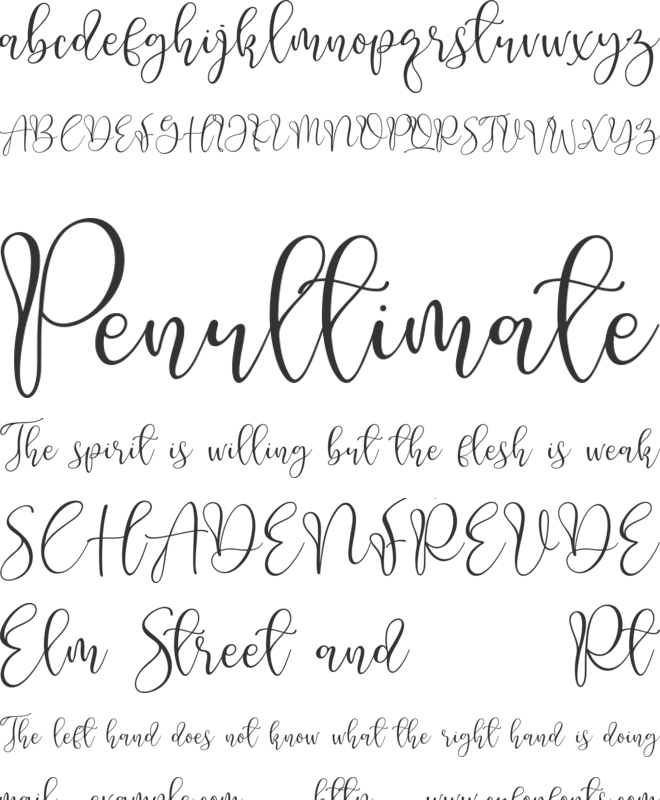 abcdefghijklmnopqrstuvwxyz
ABCDEFGHIJKLMNOPQRSTUVWXYZ
Penultimate
The spirit is willing but the flesh is weak
SCHADENFREUDE
Elm Street and Rt
The left hand does not know what the right hand is doing
mail example.com http www.cufonfonts.com